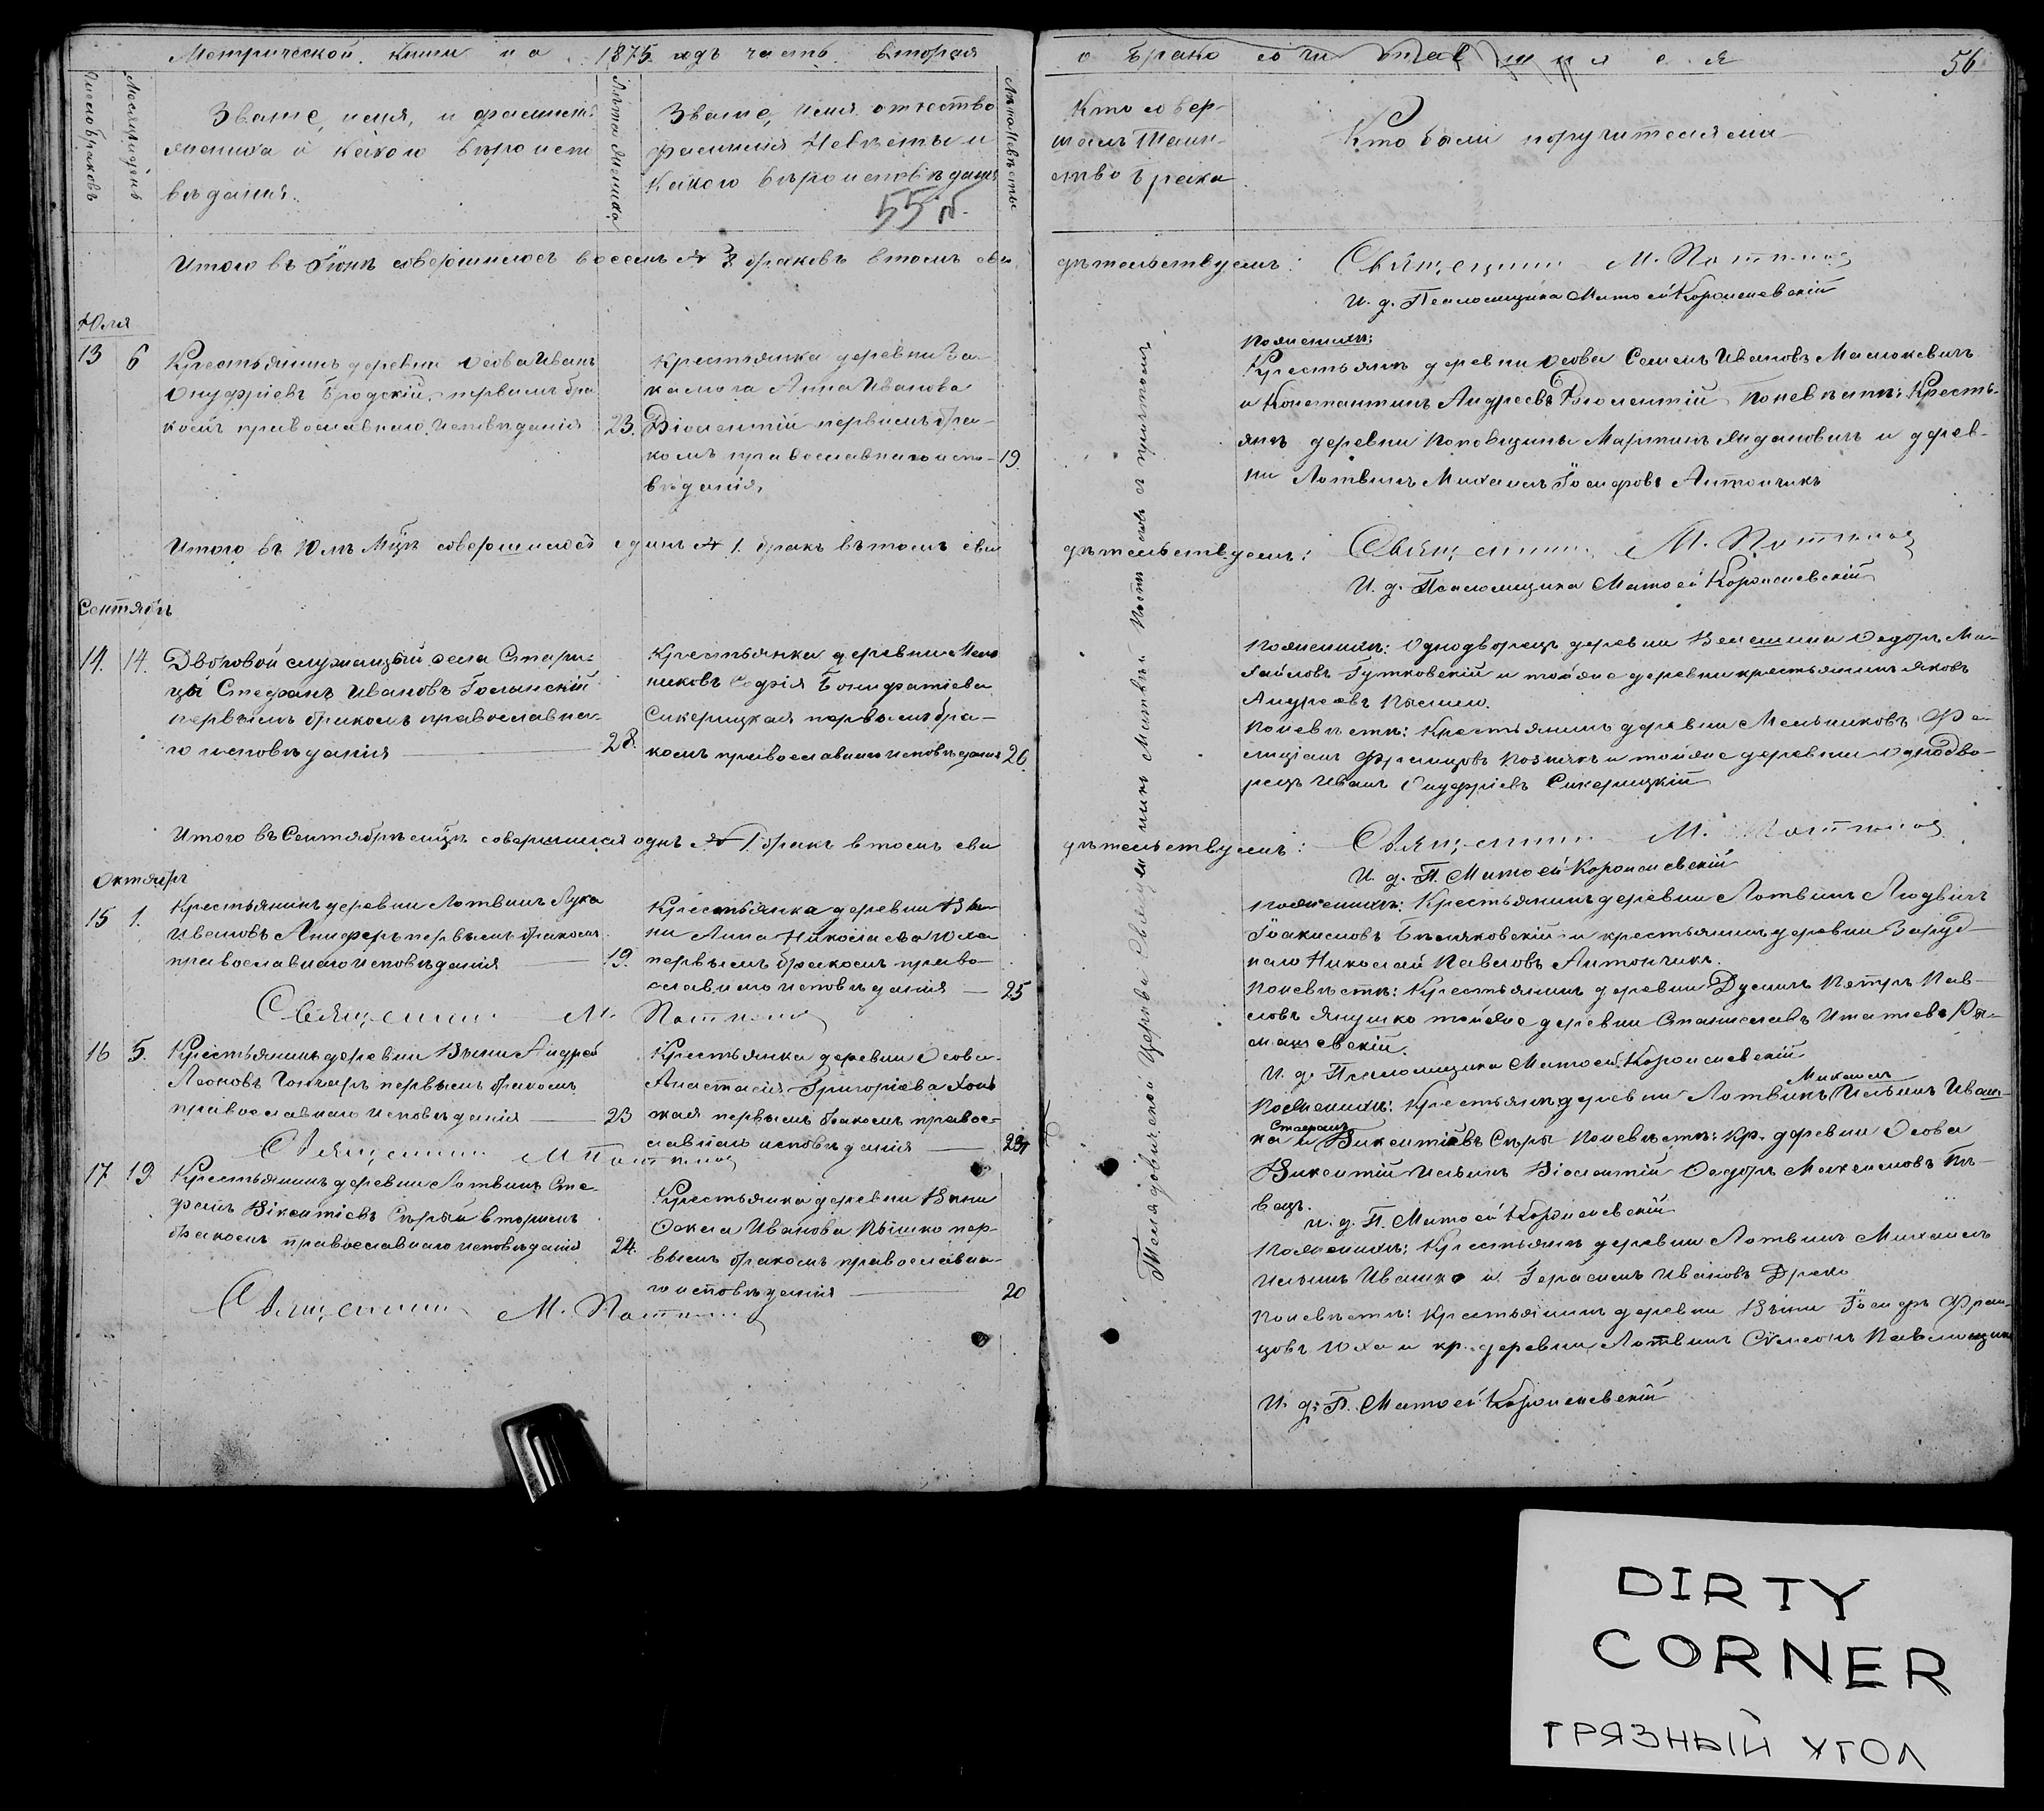 Метрической Книги на 1875 годъ часть вторая о бракосочитавшихся
56
Число браковъ
Месяцъ и день
Званіе, имя, и фамилія
жениха и какого вѣроиспо
вѣданія.
Лѣта Жениха
Званіе, имя отчество
фамилія Невѣсты и
какого вѣроисповѣданія
55 об.
Лѣта Невѣсты
Кто совер-
шалъ Таин-
ство брака
Кто были поручителями
Итого въ Іюнѣ совершилось восемь № 8 браковъ в томъ сви
дѣтельствуемъ: Священникъ М.
И. д. Псаломщика Матѳей
Юля
13
6
Крестьянинъ деревни Осова Иванъ
Онуфріевъ Бродскій первымъ бра
комъ православнаго исповѣданія
23.
Крестьянка деревни За-
Анна Иванова
первымъ бра-
комъ православнаго испо-
вѣданія.
19.
По женихѣ:
Крестьяне деревни Осова Семенъ Ивановъ Маслюкевичъ
и Константинъ Андреевъ По невѣстѣ: Кресть-
яне деревни Поповщины Мартинъ Ждановичъ и дерев-
ни Лотвинъ Михаилъ Іосифовъ Антончикъ
Итого въ Юлѣ Мцѣ совершилось одинъ № 1. бракъ въ томъ сви
дѣтельствуемъ: Священникъ М.
И. д. Псаломщика Матѳей
Сентябрь
14.
14.
Дворовой служащій села Стари-
цы Стефанъ Ивановъ
первымъ бракомъ православна-
го исповѣданія
28.
Крестьянка деревни Мель
никовъ Софія Бонифатіева
Сикерицкая первымъ бра-
комъ православнаго исповѣданія
20.
По женихѣ: Однодворецъ деревни Велешина Ѳедоръ Ми-
хайловъ Гутковскій и тойже деревни крестьянинъ Яковъ
Андреевъ
По невѣстѣ: Крестьянинъ деревни Мельниковъ Фе-
лиціанъ Францовъ Познякъ и тойже деревни однодво-
рецъ Иванъ Онуфріевъ Сикерицкій
Итого въ Сентябрѣ мцѣ совершился одинъ № 1. бракъ в томъ сви
дѣтельствуемъ: Священникъ М.
И. д. П. Матѳей
Октябрь
15
1.
Крестьянинъ деревни Лотвинъ Лука
Ивановъ первымъ бракомъ
православнаго исповѣданія
19.
Крестьянка деревни Вѣ-
ни Анна Николаева Юха
первымъ бракомъ право-
славнаго исповѣданія
25
По женихѣ: Крестьянинъ деревни Лотвинъ Людвигъ
Іоакимовъ Бѣляковскій и крестьянинъ деревни
Николай Павловъ Антончикъ.
По невѣстѣ: Крестьянинъ деревни Петръ Пав-
ловъ Янушко тойже деревни Станиславъ Игнатіевъ
Священникъ М.
И. д. Псаломщика Матѳей
16
5.
Крестьянинъ деревни Вѣни Андрей
Леоновъ Гончаръ первымъ бракомъ
православнаго исповѣданія
23
Крестьянка деревни Осова
Анастасія Григоріева
первымъ бракомъ правос-
лавнаго исповѣданія
23
По женихѣ: Крестьяне деревни Лотвинъ Михаилъ Ильинъ Иваш-
ка и Стефанъ Викентіевъ Сѣры По невѣстѣ: Кр. деревни Осова
Викентій Ильинъ Ѳедоръ Максимовъ Пѣ-
вецъ.
Священникъ М.
И. д. П. Матѳей
17
19
Крестьянинъ деревни Лотвинъ Сте-
фанъ Вікентіевъ Сѣрый вторымъ
бракомъ православнаго исповѣданія
24.
Крестьянка деревни Вѣни
Ѳекла Иванова Пышко пер-
вымъ бракомъ православна-
го исповѣданія
20
По женихѣ: Крестьяне деревни Лотвинъ Михаилъ
Ильинъ Ивашко и Герасимъ Ивановъ
По невѣстѣ: Крестьянинъ деревни Вѣни Іосифъ Фран-
цовъ Юха и кр. деревни Лотвинъ Симеонъ
Священникъ М.
И. д. П. Матѳей
Церкви Священникъ Матвѣй с причтомъ
DIRTY
CORNER
ГРЯЗНЫЙ УГОЛ